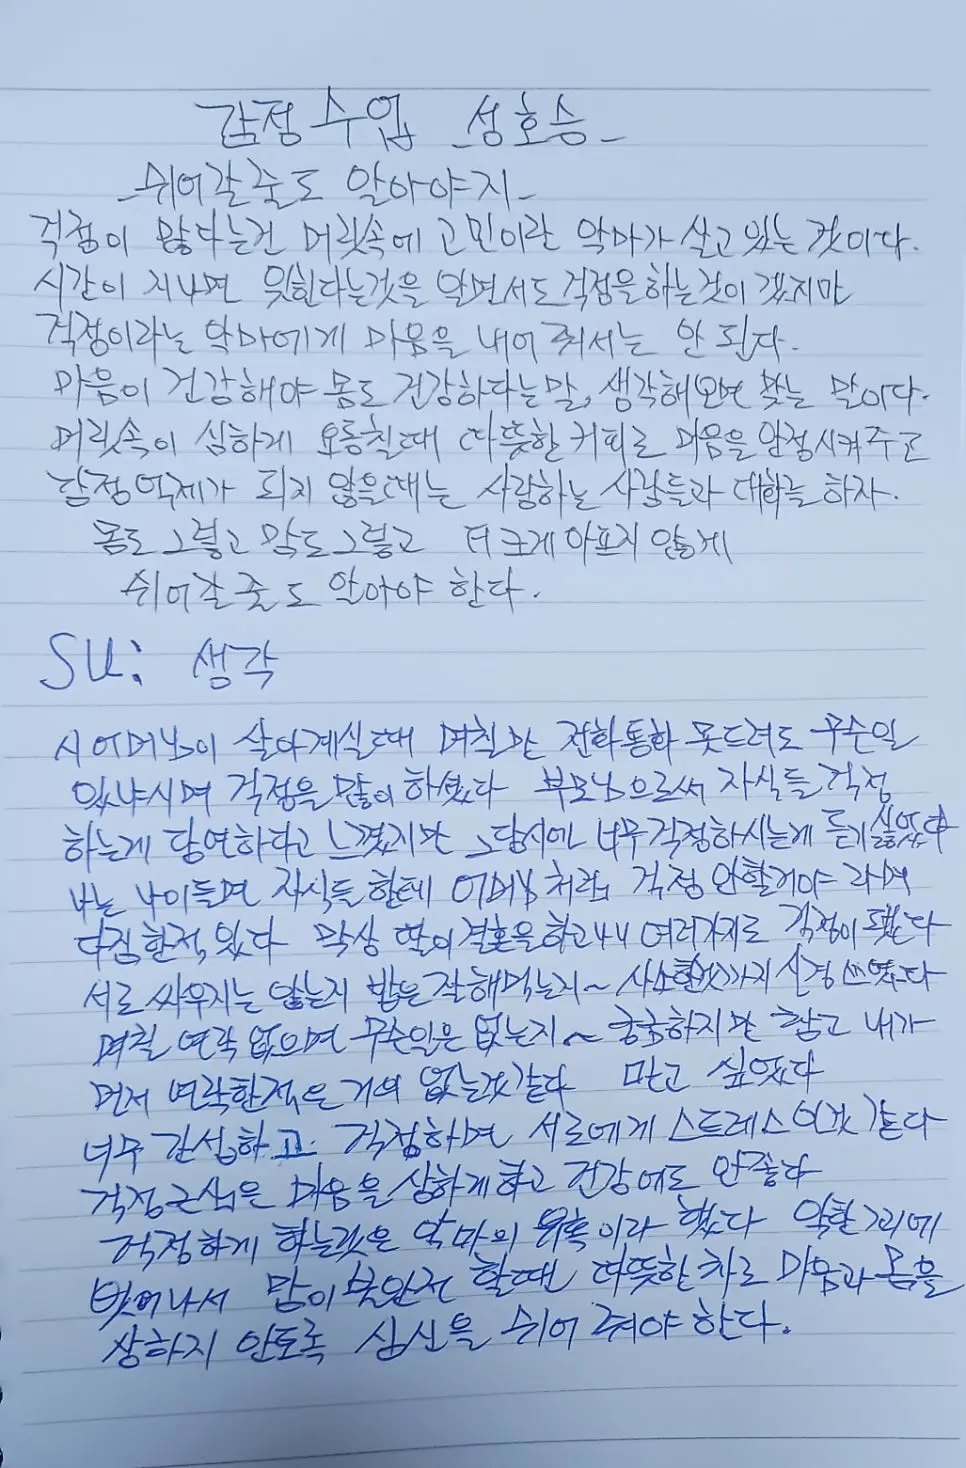 감정 수업 _성호승_
_쉬어갈 줄도 알아야지_
걱정이 많다는건 머릿속에 고민이란 악마가 살고 있는 것이다.
시간이 지나면 잊힌다는것을 알면서도 걱정을하는것이 겠지만
걱정이라는 악마에게 마음을 내어 줘서는 안 된다.
마음이 건강해야 몸도 건강하다는말, 생각해보면 맞는 말이다.
머릿속이 심하게 요동칠때 따뜻한 커피로 마음을 안정시켜 주고
감정 억제가 되지 않을때는 사랑하는 사람들과 대화를 하자.
몸도 그렇고 맘도 그렇고 더 크게 아프지 않게
쉬어갈 줄도 알아야 한다.
SU: 생각
시어머님이 살아계실때 며칠만 전화통화 못드려도 무슨일
있냐시며 걱정을 많이 하셨다 부모님으로써 자식들 걱정
하는게 당연하다고 느꼈지만 그당시에 너무 걱정하시는게 듣기싫었다
나는 나이들면 자식들 한테 어머님 처럼 걱정 안할거야 라며
다짐한적 있다 막상 딸이 결혼을 하고 나니 여러가지로 걱정이 됐다
서로 싸우지는 않는지 밥은 잘해먹는지~ 사소한것까지 신경 쓰였다
며칠 연락 없으면 무슨일은 없는지~ 궁금하지만 참고 내가
먼저 연락한적은 거의 없는것같다 믿고 싶었다
너무 간섭하고 걱정하면 서로에게 스트레스인것같다
걱정근심은 마음을 상하게하고 건강에도 안좋다
걱정하게 하는것은 악마의 유혹이라 했다 악할고리에
벗어나서 맘이 불안전 할때면 따뜻한 차로 마음과 몸을
상하지 안토록 심신을 쉬어 줘야 한다.